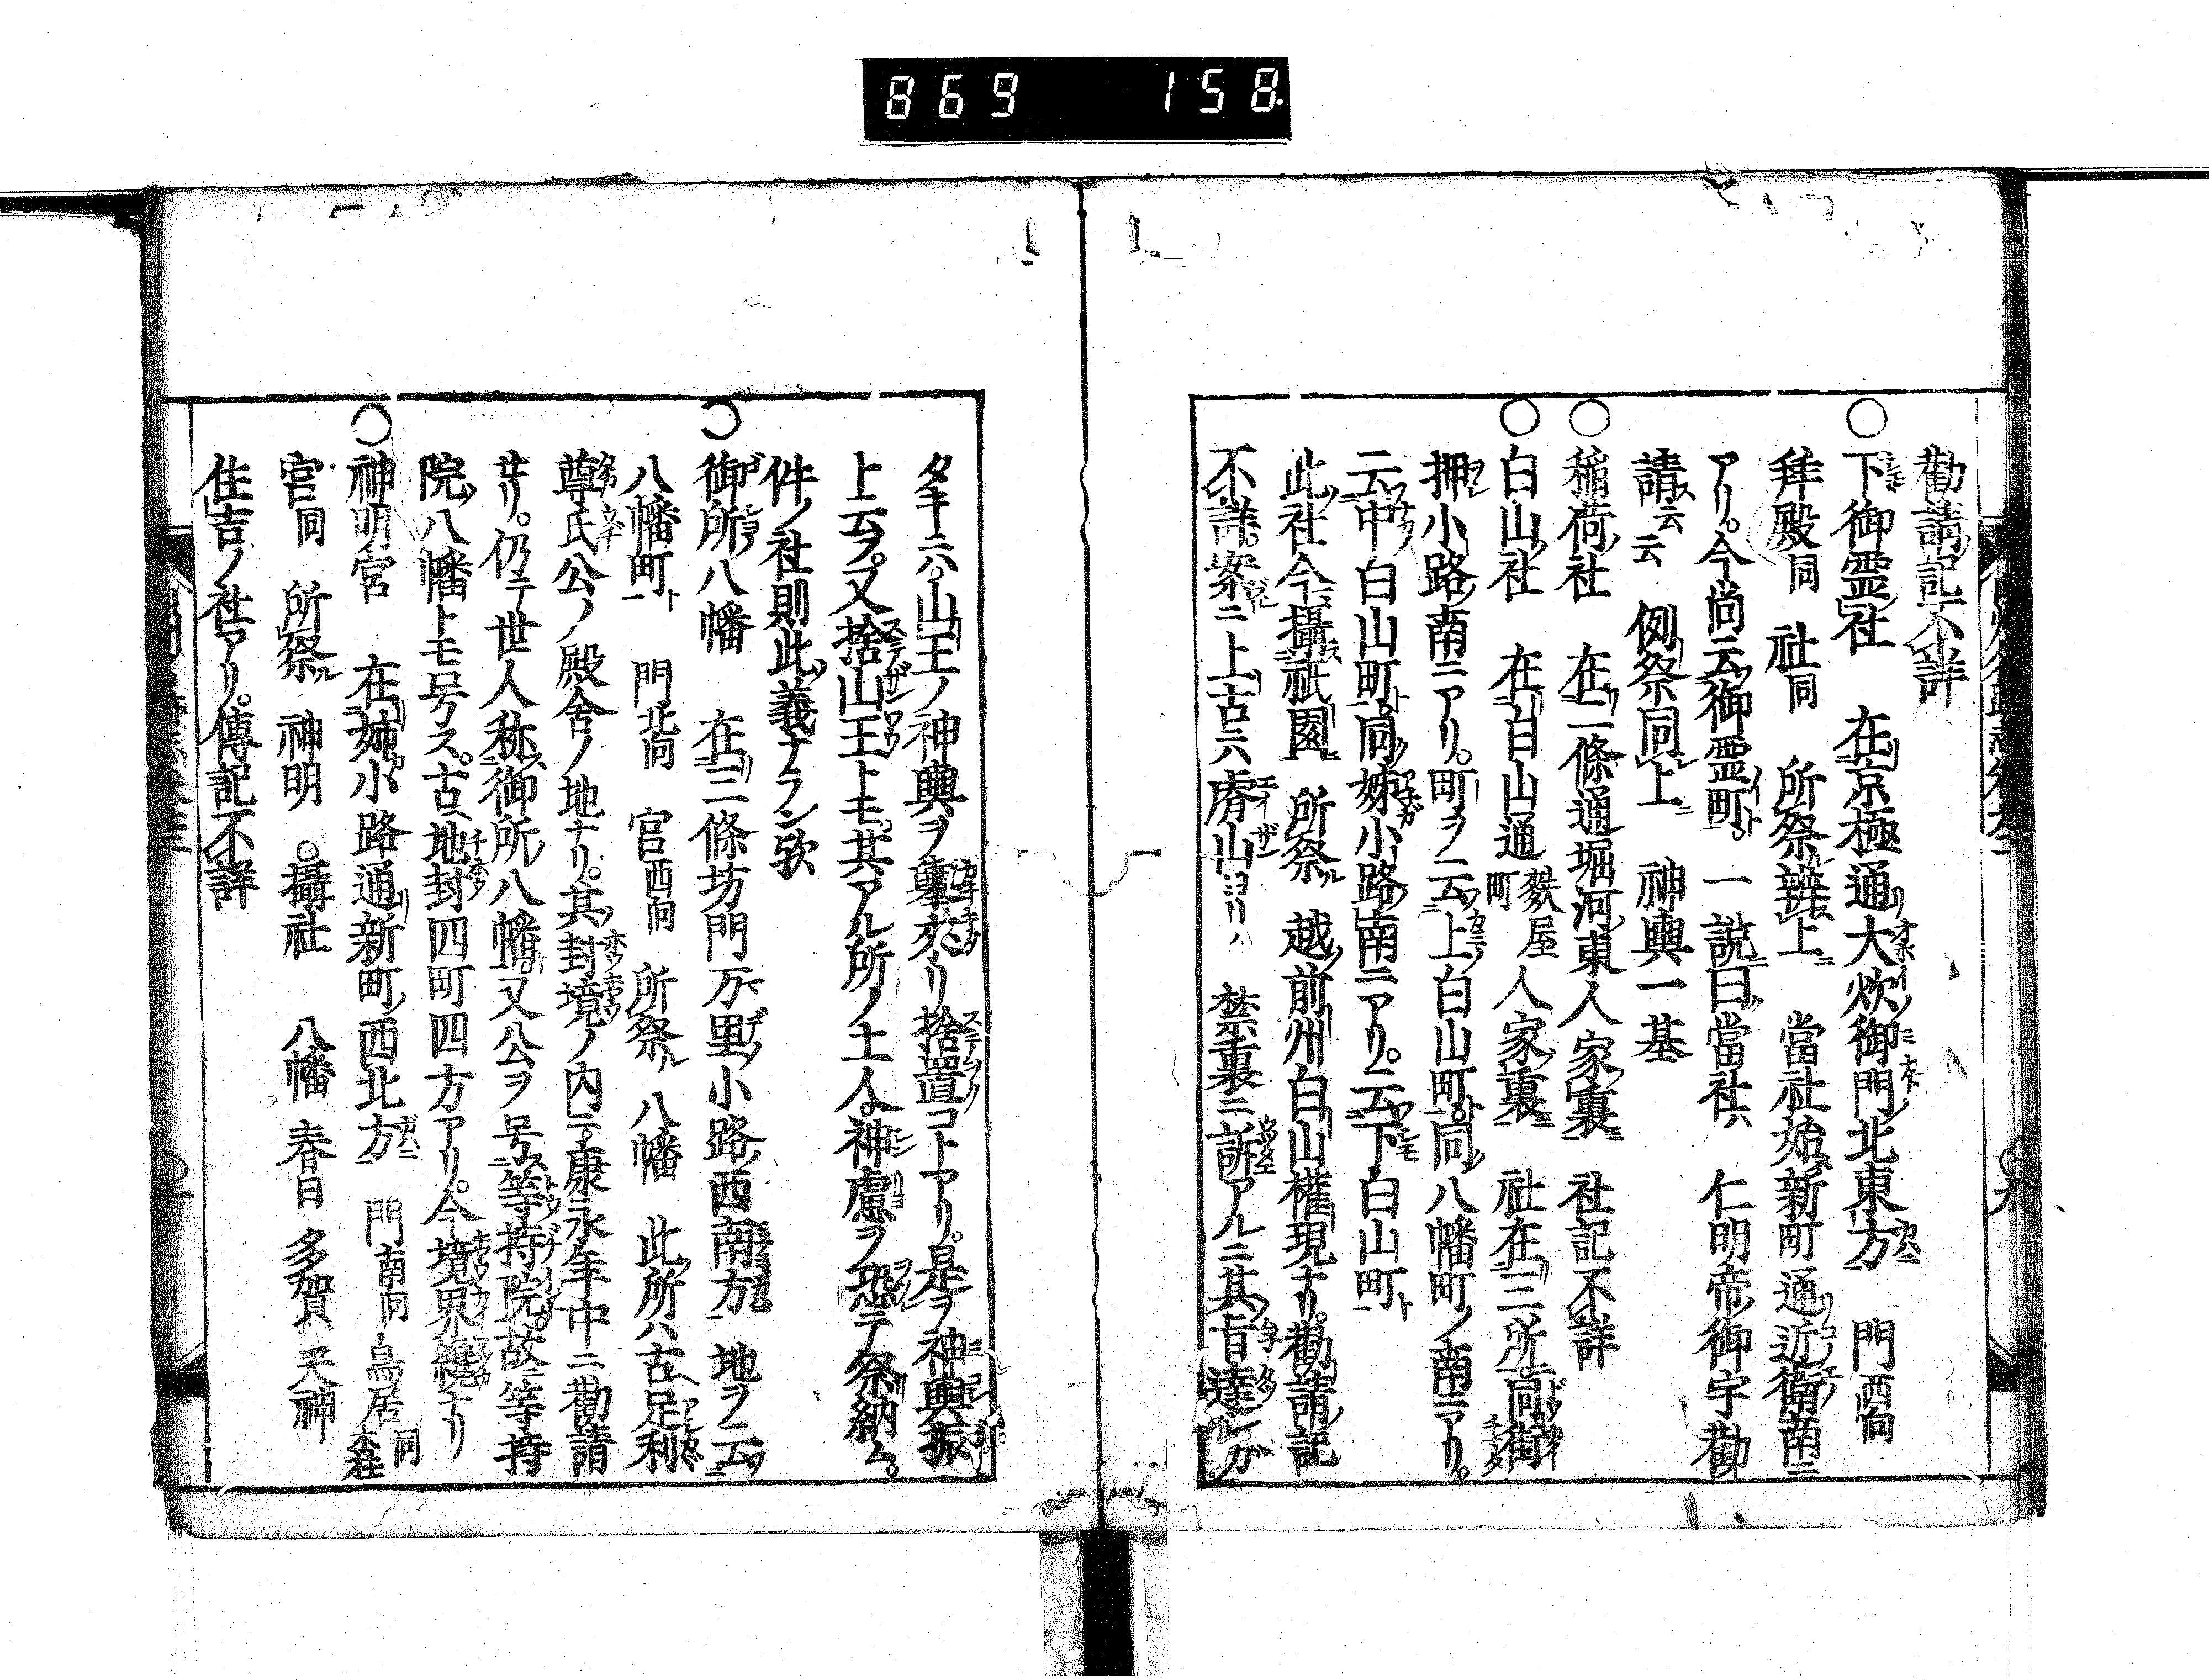 869 158
勸請記不詳
○下御霊社 在京極通大炊御門北東方 門西向
拜殿同 社同 所祭辨上 當社始新町通近衛南ニ
アリ。今尚云御霊町。一說曰當社ハ 仁明帝御宇勸
請云云 例祭同上 神輿一基
○稲荷社 在二條通堀河東人家裏 社記不詳
○白山社 在白山通麩屋町人家裏 社在三所同街
押小路南ニアリ。町ヲ云上白山町同八幡町ノ南ニアリ。
云中白山町同姉小路南ニアリ。云下白山町
此社今攝祇園 所祭 越前州白山權現ナリ。勸請記
不詳。案ニ上古ハ 山ヨリ 禁裏ニ訴アルニ其旨達シガ
タキニハ。山王ノ神輿ヲ舉來リ捨置コトアリ。是ヲ神輿振
ト云フ。又捨山王トモ。其アル所ノ土人神慮ヲ恐テ祭納ム。
件ノ社則此義ナラン歟
○御所八幡 在三條坊門万里小路西南方 地ヲ云
八幡町 門北向 宮西向 所祭 八幡 此所ハ古足利
尊氏公ノ殿舍ノ地ナリ。其封境ノ内ニ康永年中ニ勸請
せリ。仍テ世人称御所八幡又公ヲ号等持院。故等持
院八幡トモ号ス。古地封四町四方アリ。今境界纔ナリ
○神明宮 在姉小路通新町西北方 門南向 鳥居同
宮同 所祭 神明 ○攝社 八幡 春日 多賀 天神
住吉ノ社アリ。傳記不詳